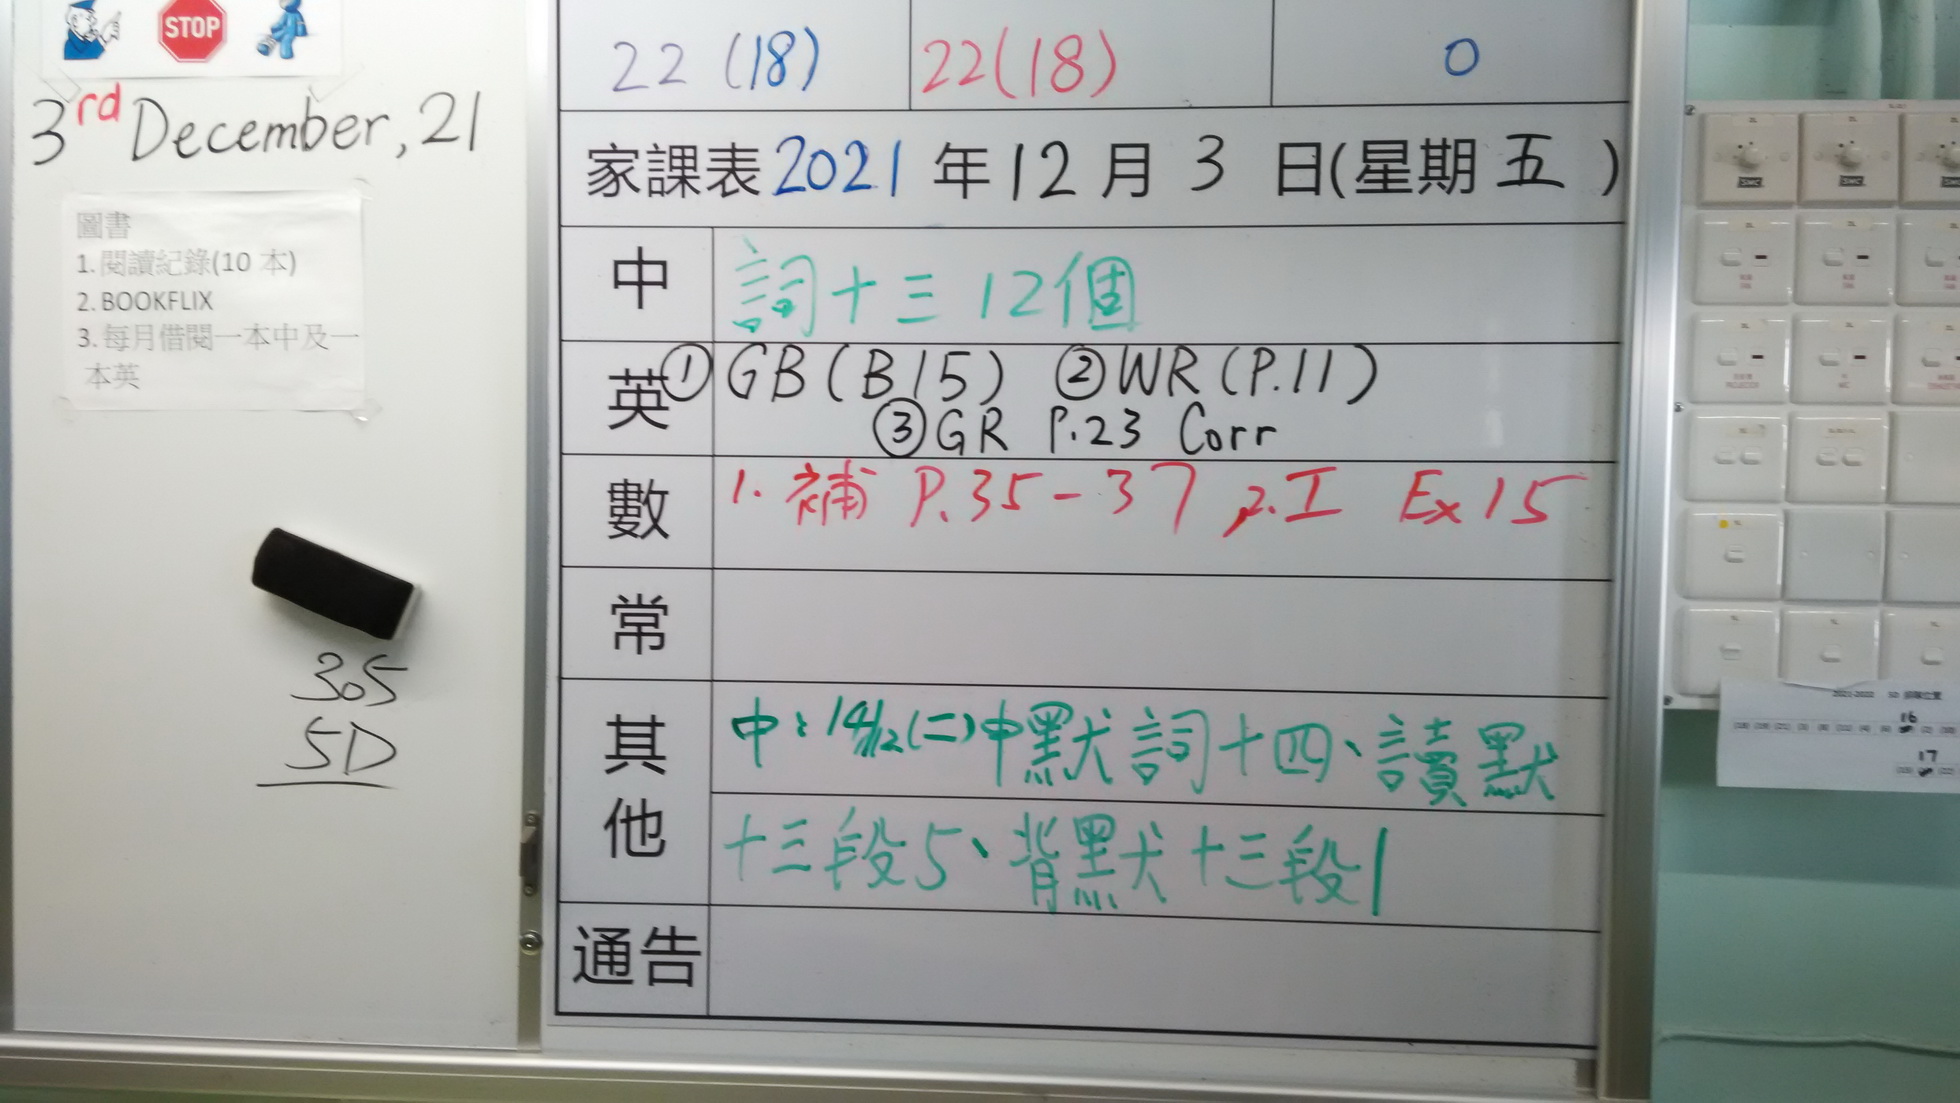 STOP
3rd December, 21
圖書
1. 閱讀紀錄(10 本)
2. BOOKFLIX
3. 每月借閱一本中及一
本英
305
5D
22 (18) 22(18) 0
家課表2021 年 12 月 3 日(星期 五 )
中 詞十三 12個
英 ① GB (B15) ② WR (P.11)
③ GR P.23 Corr
數 1. 補 P.35-37 2. I Ex 15
常
其他
中：14/12(二)中默 詞十四、讀默
十三段5、背默十三段1
通告
16
17